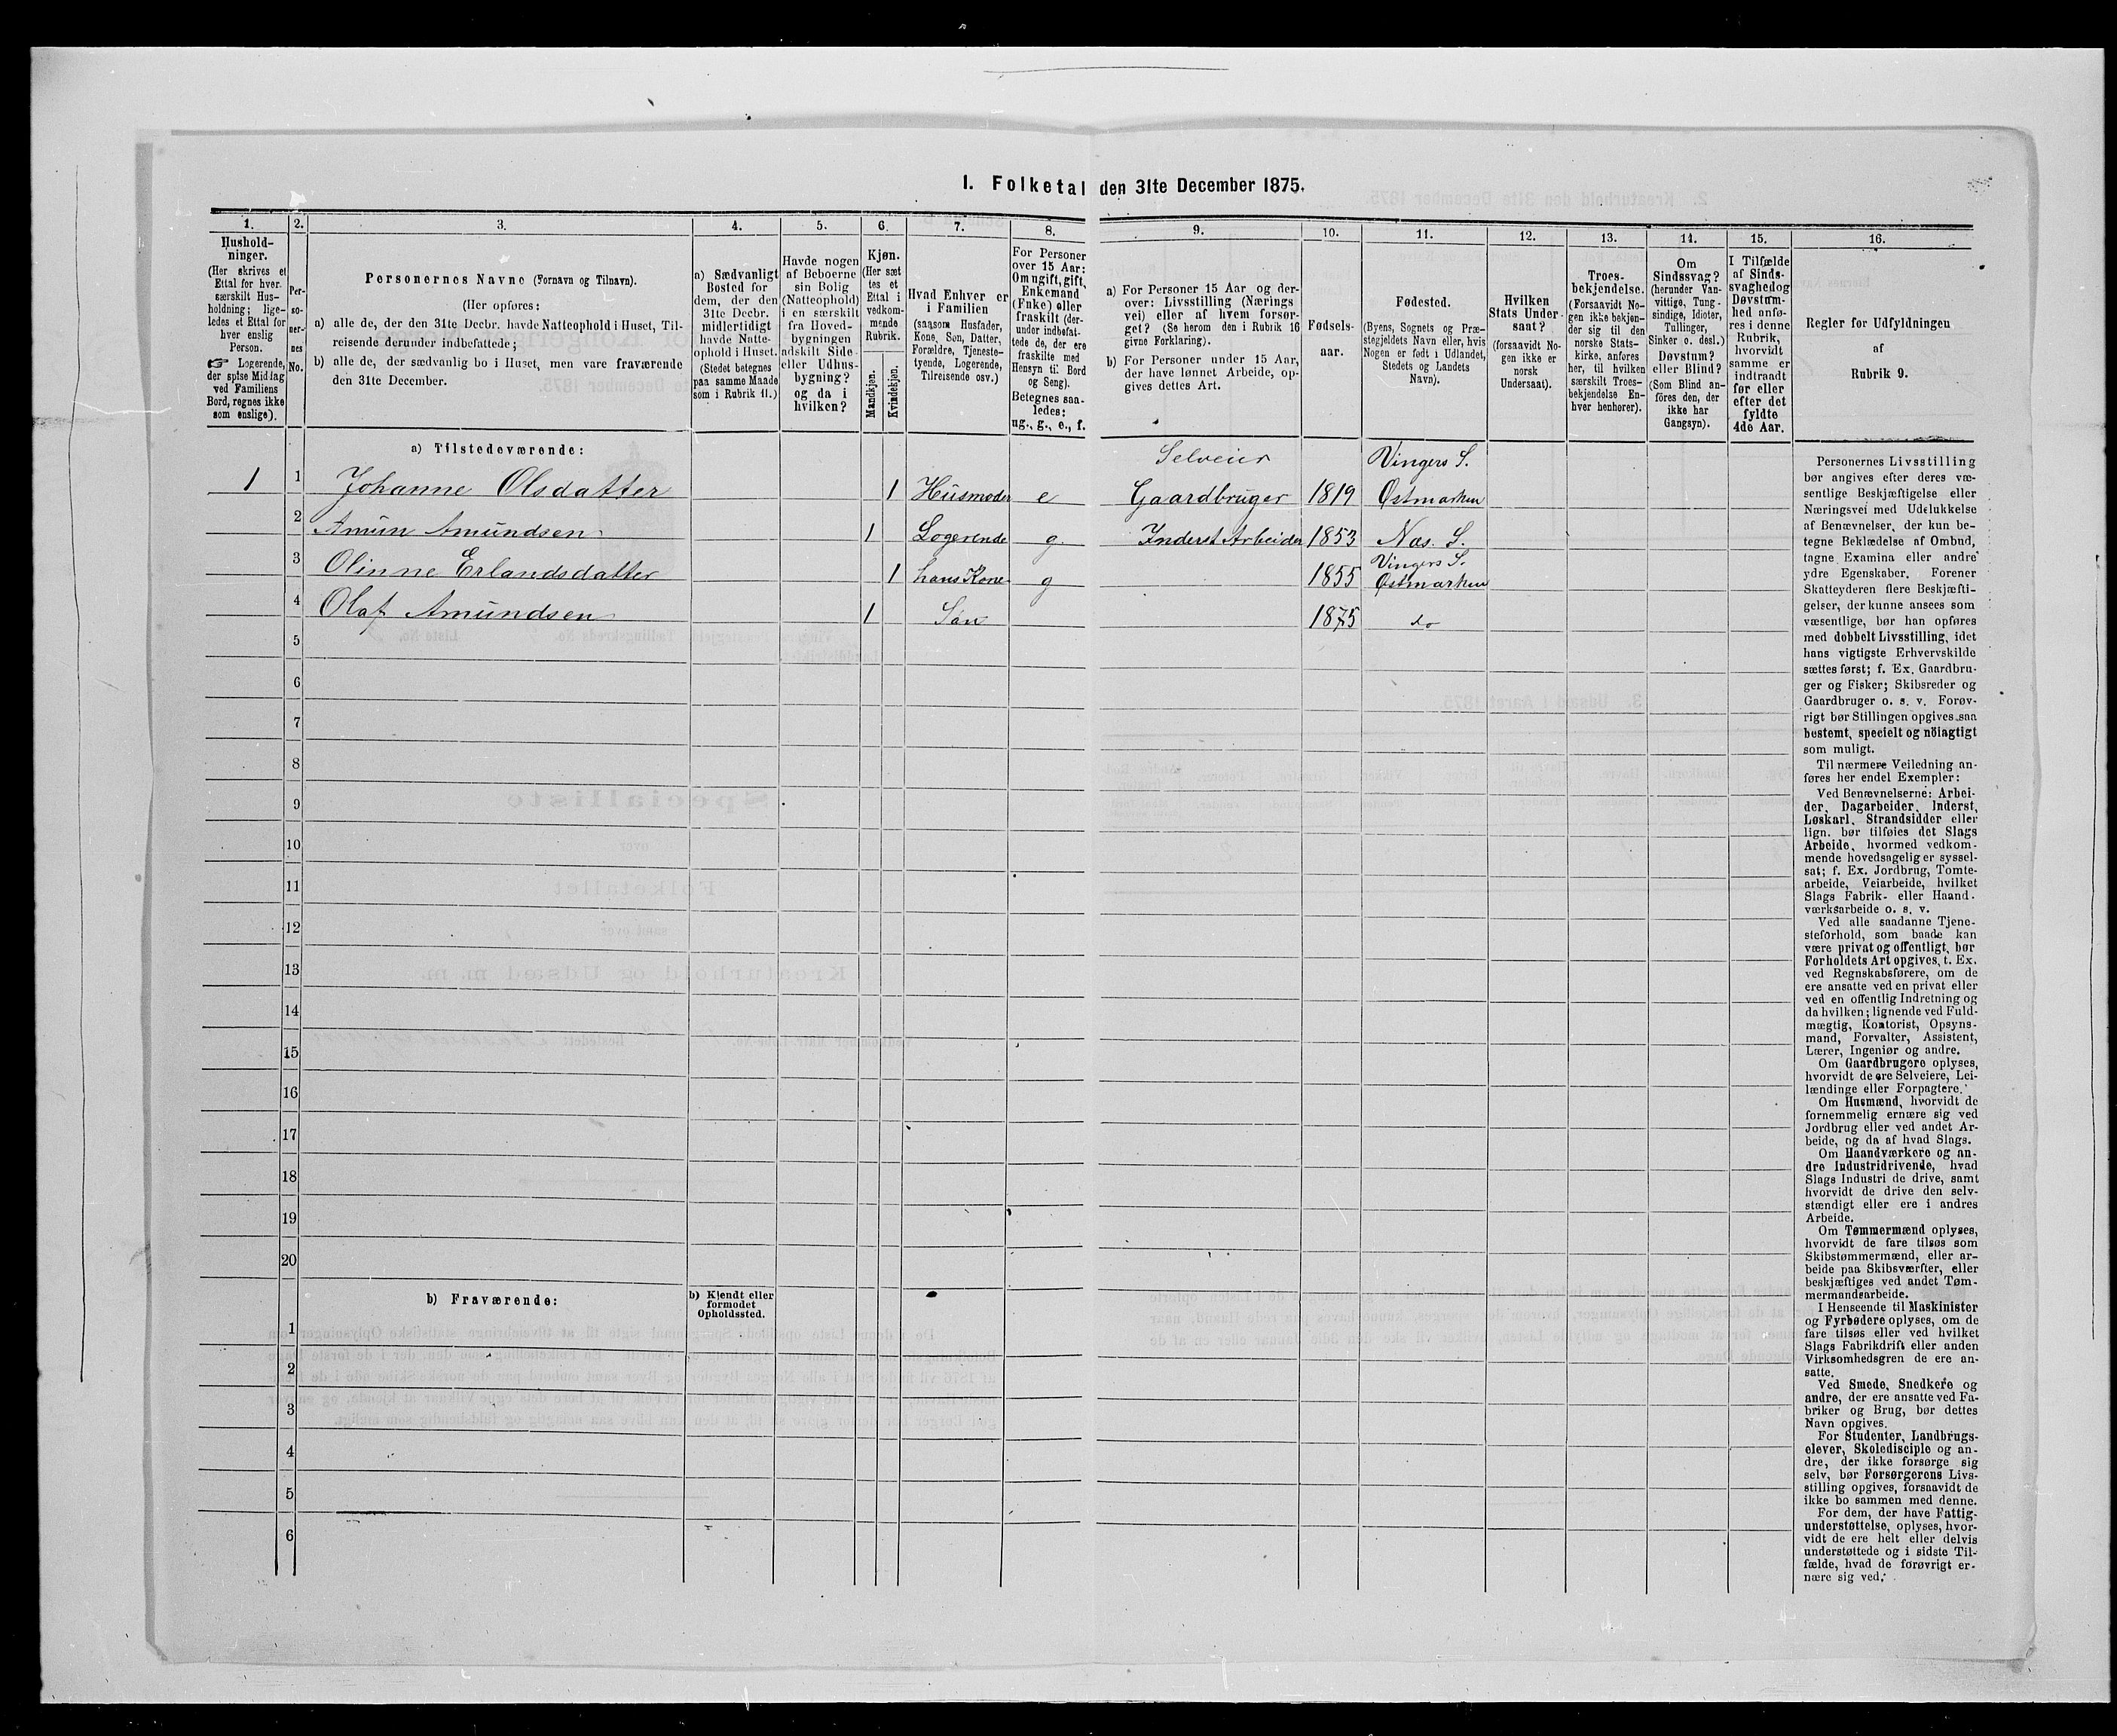 1. Folketal den 31te December 1875.
1. 2. 3. 4. 5. 6. 7. 8. 9. 10. 11. 12. 13. 14. 15. 16.
Hushold-
ninger.
(Her skrives et
Ettal for hver
særskilt Hus-
holdning; lige-
ledes et Ettal for
hver enslig
Person.
☞ Logerende,
der spise Middag
ved Familiens
Bord, regnes ikke
som enslige).
Per-
so-
ner-
nes
No.
Personernes Navne (Fornavn og Tilnavn).
(Her opføres:
a) alle de, der den 31te Decbr. havde Natteophold i Huset, Til-
reisende derunder indbefattede;
b) alle de, der sædvanlig bo i Huset, men vare fraværende
den 31te December.
a) Sædvanligt
Bosted for
dem, der den
31te Decbr.
midlertidigt
havde Natte-
ophold i Huset.
(Stedet betegnes
paa samme Maade
som i Rubrik 11.)
Havde nogen
af Beboerne
sin Bolig
(Natteophold)
i en særskilt
fra Hoved-
bygningen
adskilt Side-
eller Udhus-
bygning?
og da i
hvilken?
Kjøn.
(Her sæt
tes et
Ettal i
vedkom-
mende
Rubrik.
Mandkjøn.
Kvindekjøn.
Hvad Enhver er
i Familien
(saasom Husfader,
Kone, Søn, Datter,
Forældre, Tjeneste-
tyende, Logerende,
Tilreisende osv.)
For Personer
over 15 Aar:
Om ugift, gift,
Enkemand
(Enke) eller
fraskilt (der-
under indbefat-
tede de, der ere
fraskilte med
Hensyn til Bord
og Seng).
Betegnes saa-
ledes:
ug., g., e., f.
a) For Personer 15 Aar og der-
over: Livsstilling (Nærings
vei) eller af hvem forsør-
get? (Se herom den i Rubrik 16
givne Forklaring).
b) For Personer under 15 Aar,
der have lønnet Arbeide, op-
gives dettes Art.
Fødsels-
aar.
Fødested.
(Byens, Sognets og Præ-
stegjeldets Navn eller, hvis
Nogen er født i Udlandet,
Stedets og Landets
Navn).
Hvilken
Stats Under-
saat?
(forsaavidt No-
gen ikke er
norsk
Undersaat).
Troes-
bekjendelse.
(Forsaavidt No-
gen ikke bekjen-
der sig til den
norske Stats-
kirke, anføres
her, til hvilken
særskilt Troes-
bekjendelse En-
hver henhører).
Om
Sindssvag?
(herunder Van-
vittige, Tung-
sindige, Idioter,
Tullinger,
Sinker o. desl.)
Døvstum?
eller Blind?
(Som Blind an-
føres den, der
ikke har
Gangsyn).
I Tilfælde
af Sinds-
svaghed og
Døvstum-
hed anfø-
res i denne
Rubrik,
hvorvidt
samme er
indtraadt
før eller
efter det
fyldte
4de Aar.
Regler for Udfyldningen
af
Rubrik 9.
a) Tilstedeværende:
Selveier Vingers S.
1 1 Johanne Olsdatter 1 Husmoder e Gaardbruger 1819 Østmarken
2 Amun Amundsen 1 Logerende g Inderst Arbeider 1853 Næs. S.
Vingers S.
3 Olinne Erlandsdatter 1 hans Kone g 1855 Østmarken
4 Olaf Amundsen 1 Søn 1875 do
5
6
7
8
9
10
11
12
13
14
15
16
17
18
19
20
b) Fraværende:
b) Kjendt eller
formodet
Opholdssted.
1
2
3
4
5
6
Personernes Livsstilling
bør angives efter deres væ-
sentlige Beskjæftigelse eller
Næringsvei med Udelukkelse
af Benævnelser, der kun be-
tegne Beklædelse af Ombud,
tagne Examina eller andre
ydre Egenskaber. Forener
Skatteyderen flere Beskjæfti-
gelser, der kunne ansees som
væsentlige, bør han opføres
med dobbelt Livsstilling, idet
hans vigtigste Erhvervskilde
sættes først; f. Ex. Gaardbru-
ger og Fisker; Skibsreder og
Gaardbruger o. s. v. Forøv-
rigt bør Stillingen opgives saa
bestemt, specielt og nöiagtigt
som muligt.
Til nærmere Veiledning an-
føres her endel Exempler:
Ved Benævnelserne: Arbei-
der, Dagarbeider, Inderst,
Løskarl, Strandsidder eller
lign. bør tilføies det Slags
Arbeide, hvormed vedkom-
mende hovedsagelig er syssel-
sat; f. Ex. Jordbrug, Tomte-
arbeide, Veiarbeide, hvilket
Slags Fabrik- eller Haand-
værksarbeide o. s. v.
Ved alle saadanne Tjene-
steforhold, som baade kan
være privat og offentligt, bør
Forholdets Art opgives, t. Ex.
ved Regnskabsførere, om de
ere ansatte ved en privat eller
ved en offentlig Indretning og
da hvilken; lignende ved Fuld-
mægtig, Kontorist, Opsyns-
mand, Forvalter, Assistent,
Lærer, Ingeniør og andre.
Om Gaardbrugere oplyses,
hvorvidt de ere Selveiere, Lei-
lændinge eller Forpagtere.
Om Husmænd, hvorvidt de
fornemmelig ernære sig ved
Jordbrug eller ved andet Ar-
beide, og da af hvad Slags.
Om Haandværkere og an-
dre Industridrivende, hvad
Slags Industri de drive, samt
hvorvidt de drive den selv-
stændigt eller ere i andres
Arbeide.
Om Tømmermænd oplyses,
hvorvidt de fare tilsøs som
Skibstømmermænd, eller ar-
beide paa Skibsværfter, eller
beskjæftiges ved andet Tøm-
mermandsarbeide.
I Henseende til Maskinister
og Fyrbødere oplyses, om de
fare tilsøs eller ved hvilket
Slags Fabrikdrift eller anden
Virksomhedsgren de ere an-
satte.
Ved Smede, Snedkere og
andre, der ere ansatte ved Fa-
briker og Brug, bør dettes
Navn opgives.
For Studenter, Landbrugs-
elever, Skoledisciple og an-
dre, der ikke forsørge sig
selv, bør Forsørgerens Livs-
stilling opgives, forsaavidt de
ikke bo sammen med denne.
For dem, der have Fattig-
understøttelse, oplyses, hvor-
vidt de ere helt eller delvis
understøttede og i sidste Til-
fælde, hvad de forøvrigt er-
nære sig ved.